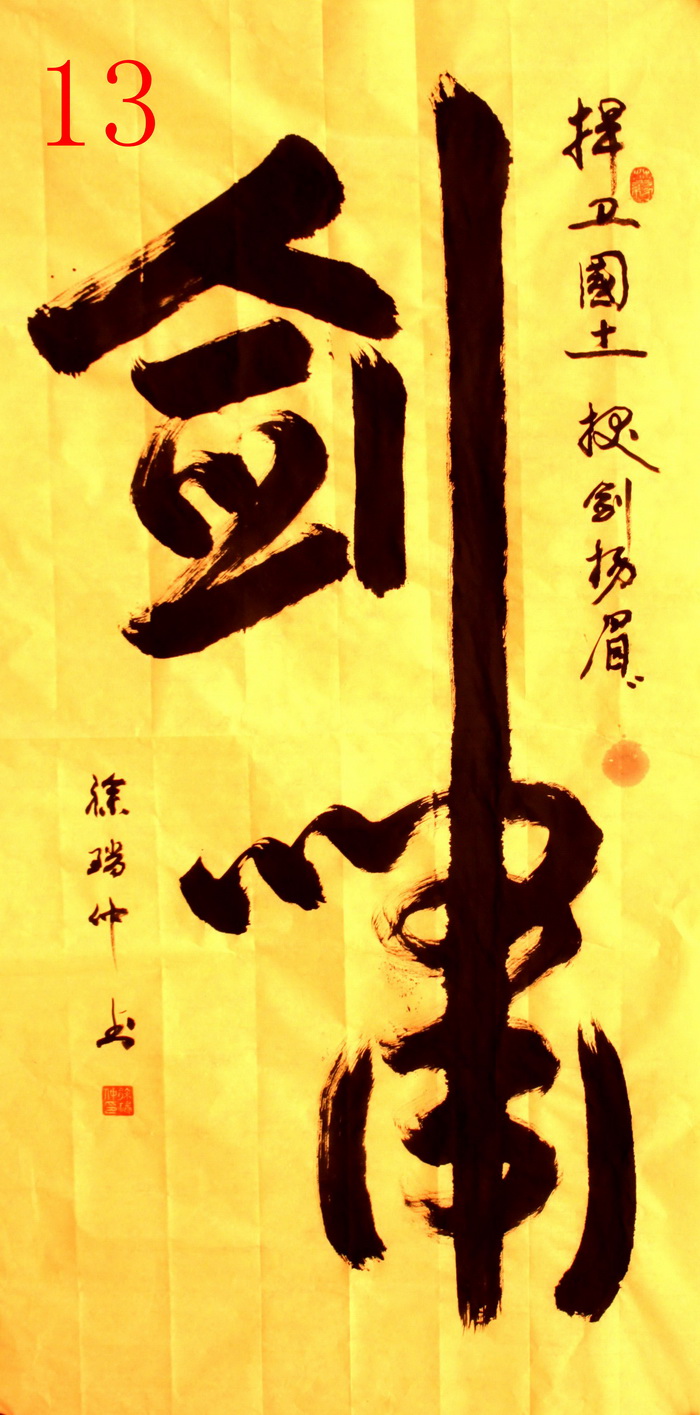 13
捍卫國土 剑扬眉
剑啸
徐瑞仲 书